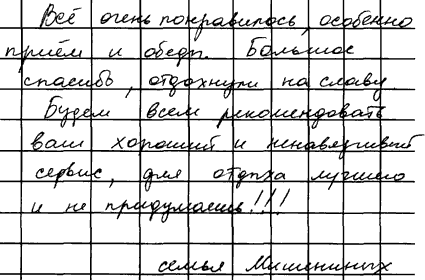 Всё очень понравилось, особенно
приём и обед. Большое
спасибо, отдохнули на славу
Будем всем рекомендовать
ваш хороший и ненавязчивый
сервис, для отдыха лучшего
и не придумаешь!!!
семья Мишениных